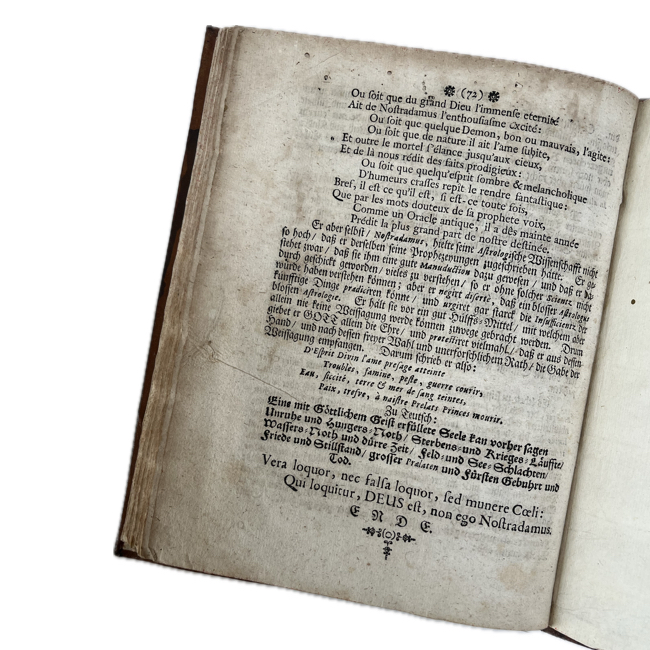 (72)
Ou soit que du grand Dieu l'immense eternité
Ait de Nostradamus l'enthousiasme excité:
Ou soit que quelque Demon, bon ou mauvais, l'agite:
Ou soit que de nature il ait l'ame subite,
Et outre le mortel s'élance jusqu'aux cieux,
Et de là nous rédit des faits prodigieux:
Ou soit que quelqu'esprit sombre & melancholique
D'humeurs crasses repît le rendre fantastique:
Bref, il est ce qu'il est, si est-ce toute fois,
Que par les mots douteux de sa prophete voix,
Comme un Oracle antique, il a dês mainte année
Prédit la plus grand part de nostre destinée.
Er aber selbst/ Nostradamus, hielte seine Astrologische Wissenschafft nicht
so hoch/ daß er derselben seine Prophezeyungen zugeschrieben hätte. Er ge-
stehet zwar/ daß sie ihm eine gute Manuduction dazu gewesen/ und daß er da-
durch geschickt geworden/ vieles zu verstehen/ so er ohne solcher Scientz nicht
würde haben verstehen können; aber er negirt diserte, daß ein blosser Astrologus
künfftige Dinge prædiciren könne/ und urgiret gar starck die Insufficientz der
blossen Astrologie. Er hält sie vor ein gut Hülffs-Mittel/ mit welchem aber
allein nie keine Weissagung werde können zuwege gebracht werden. Drum
giebet er GOTT allein die Ehre/ und protestiret vielmahl/ daß er aus dessen
Hand/ und nach dessen freyer Wahl und unerforschlichem Rath/ die Gabt der
Weissagung empfangen. Darum schrieb er also:
D'Esprit Divin l'ame presage atteinte
Troubles, famine, peste, guerre courir,
Eau, siccité, terre & mer de sang teintes,
Paix, tresve, à naistre Prelats Princes mourir.
Zu Teutsch:
Eine mit Göttlichem Geist erfüllete Seele kan vorher sagen
Unruhe und Hungers-Noth/ Sterbens- und Krieges-Läuffte/
Wassers-Noth und dürre Zeit/ Feld- und See-Schlachten/
Friede und Stillstand/ grosser Prälaten und Fürsten Gebuhrt und
Tod.
Vera loquor, nec falsa loquor, sed munere Cœli:
Qui loquitur, DEUS est, non ego Nostradamus.
E N D E.